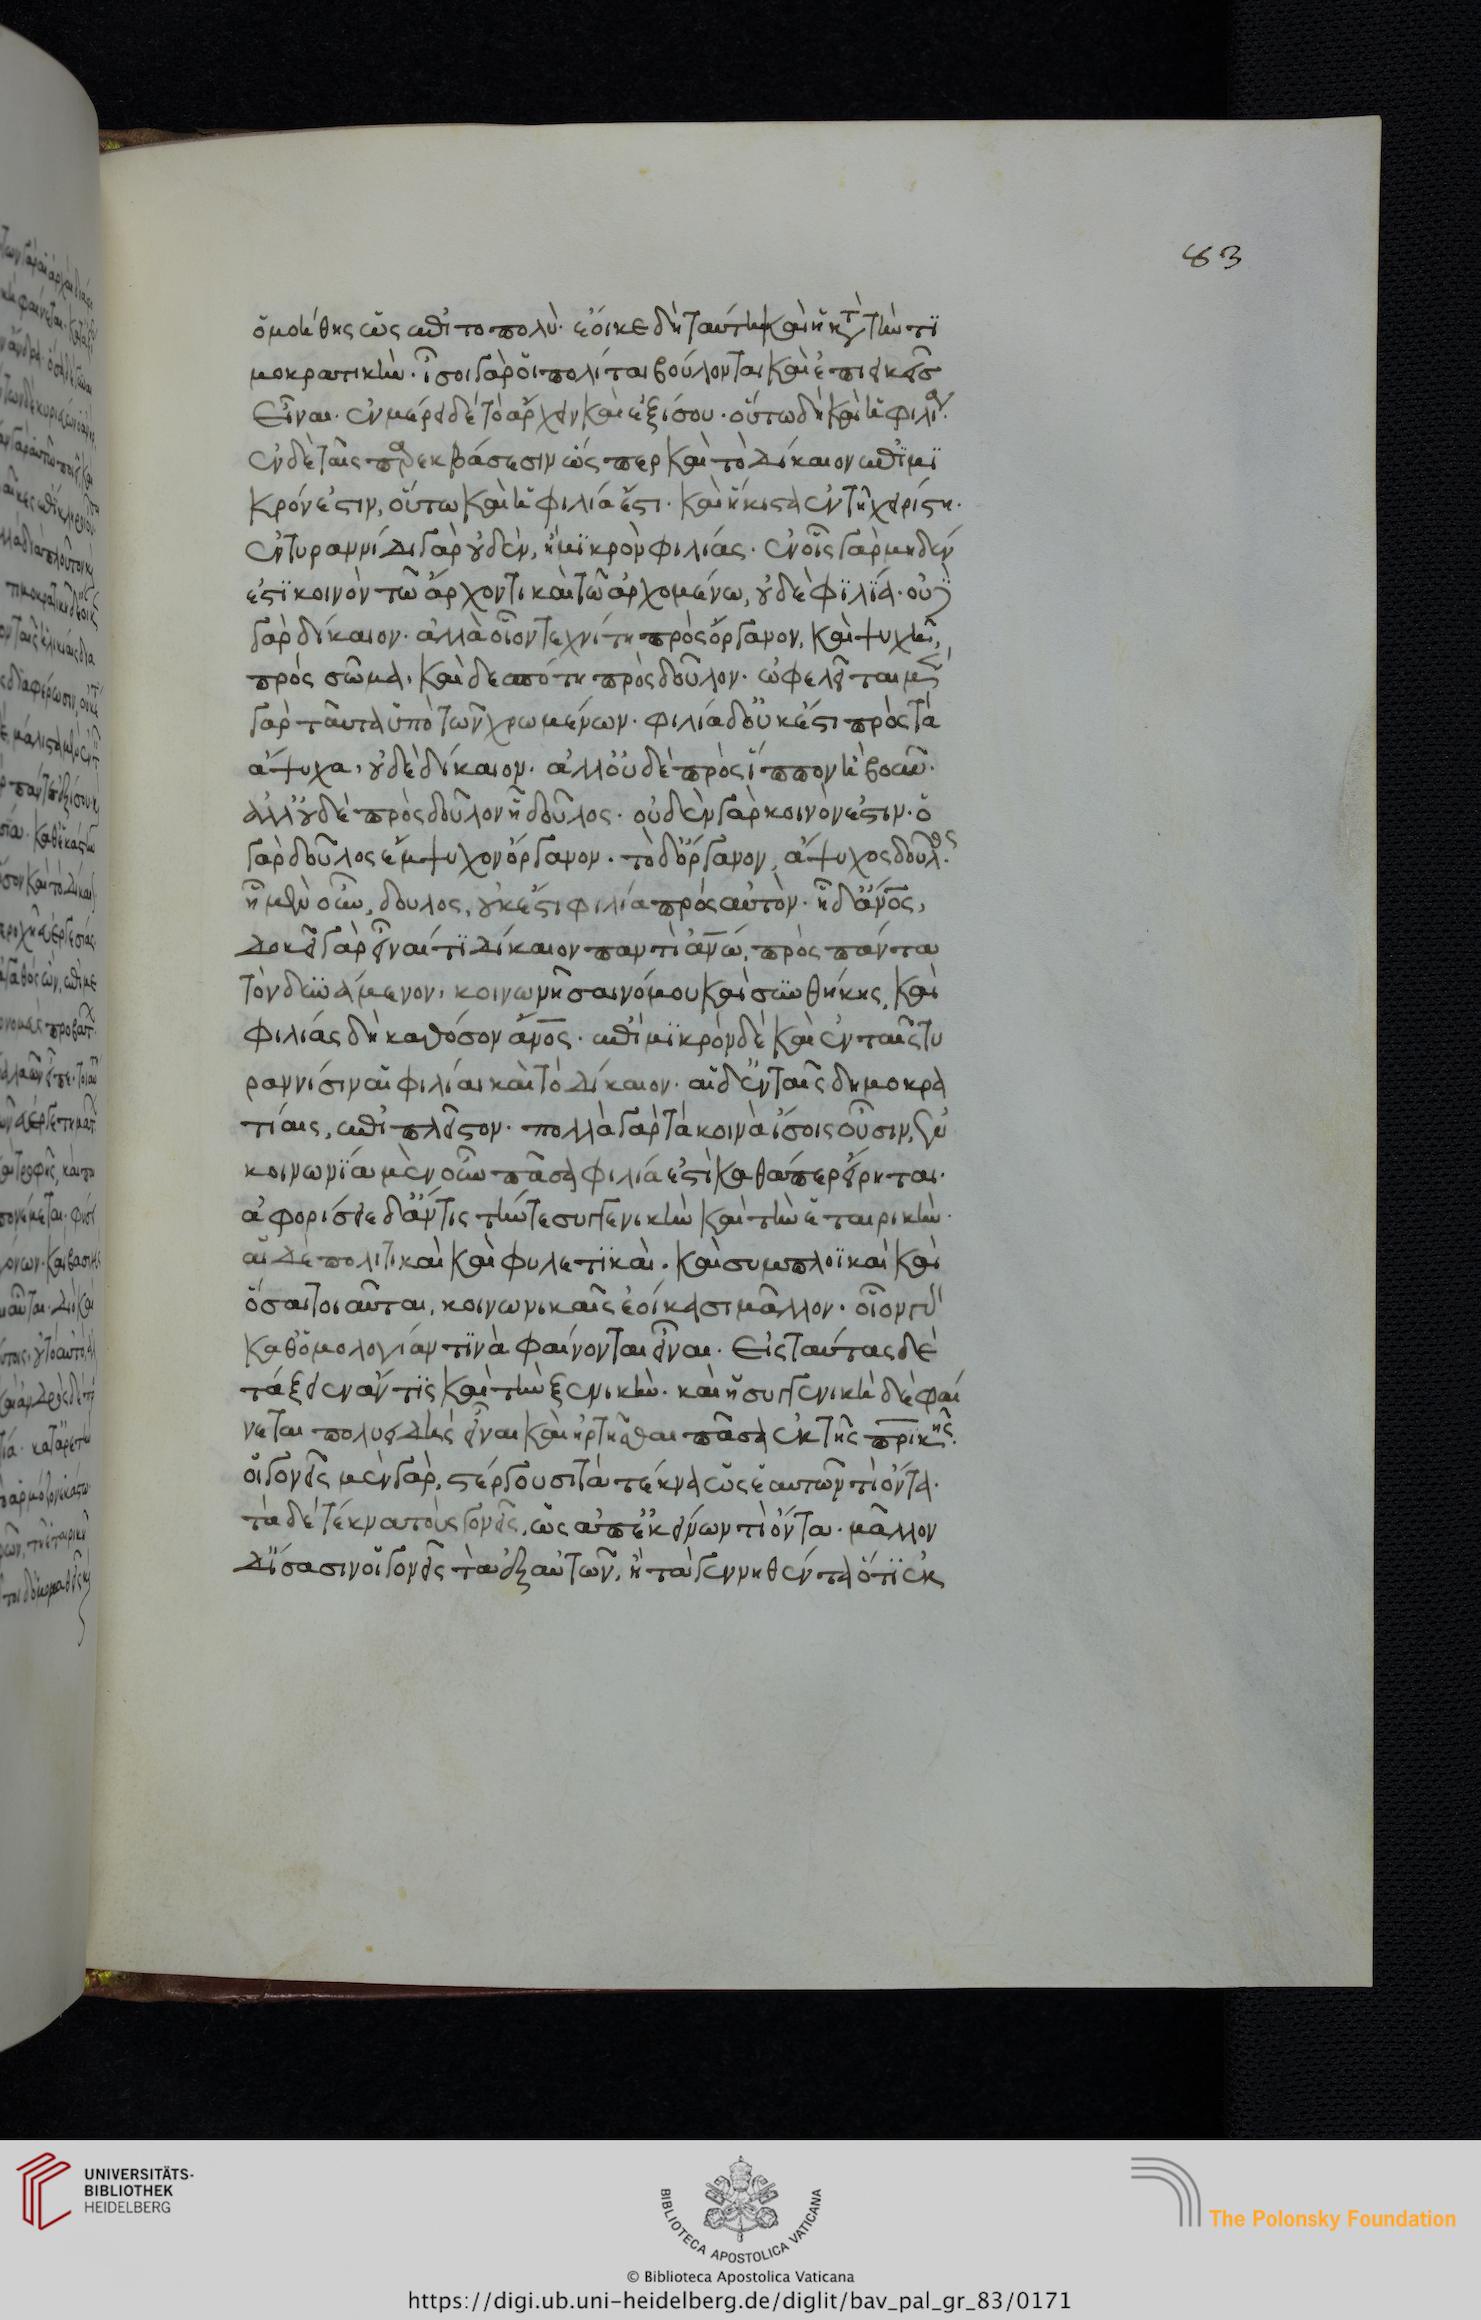 83
ὁμοήθης ὡς ἐπι το πολύ· ἐόικε δὴ ταύτη καὶ ἡ κατὰ τὴν τϊ
μοκρατικὴν· ἴσοι γὰρ ὁι πολίται βούλονται καὶ ἐπιεικεῖς
Εἶναι· ἐν μέρει δὲ τὸ ἄρχειν καὶ ἐξίσου· οὕτω δὴ καὶ ἡ φιλία·
ἐν δὲ ταῖς παρεκβάσεσιν ὥς περ καὶ τὸ δίκαιον ἐπὶ μϊ
κρόν ἐστιν, οὕτω καὶ ἡ φιλία ἔστι· καὶ ἥκιστα ἐν τῇ χειρίστη·
ἐν τυραννίδι γὰρ οὐδὲν, ἢ μϊκρὸν φιλίας· ἐν οἷς γὰρ μηδέν
ἐστϊ κοινὸν τῶ ἄρχοντι καὶ τῶ ἀρχομένω, οὐδὲ φϊλία· οὐδὲ
γὰρ δίκαιον· ἀλλὰ οἷον τεχνίτη πρὸς ὄργανον, καὶ ψυχῆ
πρός σῶμα, καὶ δεσπότη πρὸς δοῦλον· ὠφελεῖται μὲν
γὰρ ταῦτα ὑπὸ τῶν χρωμένων· φιλία δ' οὔκ ἐστι πρὸς τὰ
ἄψυχα, οὐδὲ δίκαιον· ἀλλ' ὀυδὲ πρὸς ἵππον ἢ βοῦν·
ἀλλ' οὐδὲ πρὸς δοῦλον ἧ δοῦλος· οὐδὲν γὰρ κοινὸν ἐστιν· ὁ
γὰρ δοῦλος ἔμψυχον ὄργανον· τὸ δ' ὄργανον, ἄψυχος δοῦλος·
ἧ μὲν οὖν, δουλος, οὐκ ἔστι φιλία πρὸς αὐτὸν· ἧ δ' ἄνος,
δοκεῖ γὰρ εἶναί τϊ δίκαιον παντὶ ἀνω, πρὸς πάντα
τὸν δυνάμενον, κοινωνῆσαι νόμου καὶ συνθήκης, καὶ
φιλίας δὴ καθόσον ἄνος· ἐπὶ μϊκρὸν δὲ καὶ ἐν ταῖς τυ
ραννίσιν αἱ φιλίαι καὶ τὸ δίκαιον· αἱ δ' ἐν ταῖς δημοκρα
τίαις, ἐπὶ πλεῖστον· πολλὰ γὰρ τὰ κοινὰ ἴσοις οὖσιν, ἐν
κοινωνϊα μὲν οὖν πᾶσα φιλία ἐστὶ καθάπερ εἴρηται·
ἀφορίσειε δ' ἄν τις τήν τε συγγενικὴν καὶ τὴν ἑταιρικὴν·
αἱ δὲ πολιτικαὶ καὶ φυλετϊκαὶ· καὶ συμπλοϊκαὶ καὶ
ὅσαι τοιαῦται, κοινωνικαῖς ἐοίκασι μᾶλλον· οἷον γὰρ
καθ' ὁμολογίαν τϊνὰ φαίνονται εἶναι· Εἰς ταύτας δὲ
τάξειεν ἄν τϊς καὶ τὴν ξενικὴν· καὶ ἡ συγγενικὴ δὲ φαί
νεται πολυειδὴς εἶναι καὶ ἠρτῆσθαι πᾶσα ἐκ τῆς πρικῆς·
οἱ γονεῖς μὲν γὰρ, στέργουσι τὰ τέκνα ὡς ἑαυτῶν τὶ ὄντα·
τὰ δὲ τέκνα τοὺς γονεῖς, ὡς ἀπ' ἐκείνων τὶ ὄντα· μᾶλλον
δ' ἴσασιν οἱ γονεῖς τὰ ἐξ αὐτῶν, ἢ τὰ γεννηθέντα ὅτϊ ἐκ
UNIVERSITÄTS-
BIBLIOTHEK
HEIDELBERG
BIBLIOTECA APOSTOLICA VATICANA
© Biblioteca Apostolica Vaticana
The Polonsky Foundation
https://digi.ub.uni-heidelberg.de/diglit/bav_pal_gr_83/0171